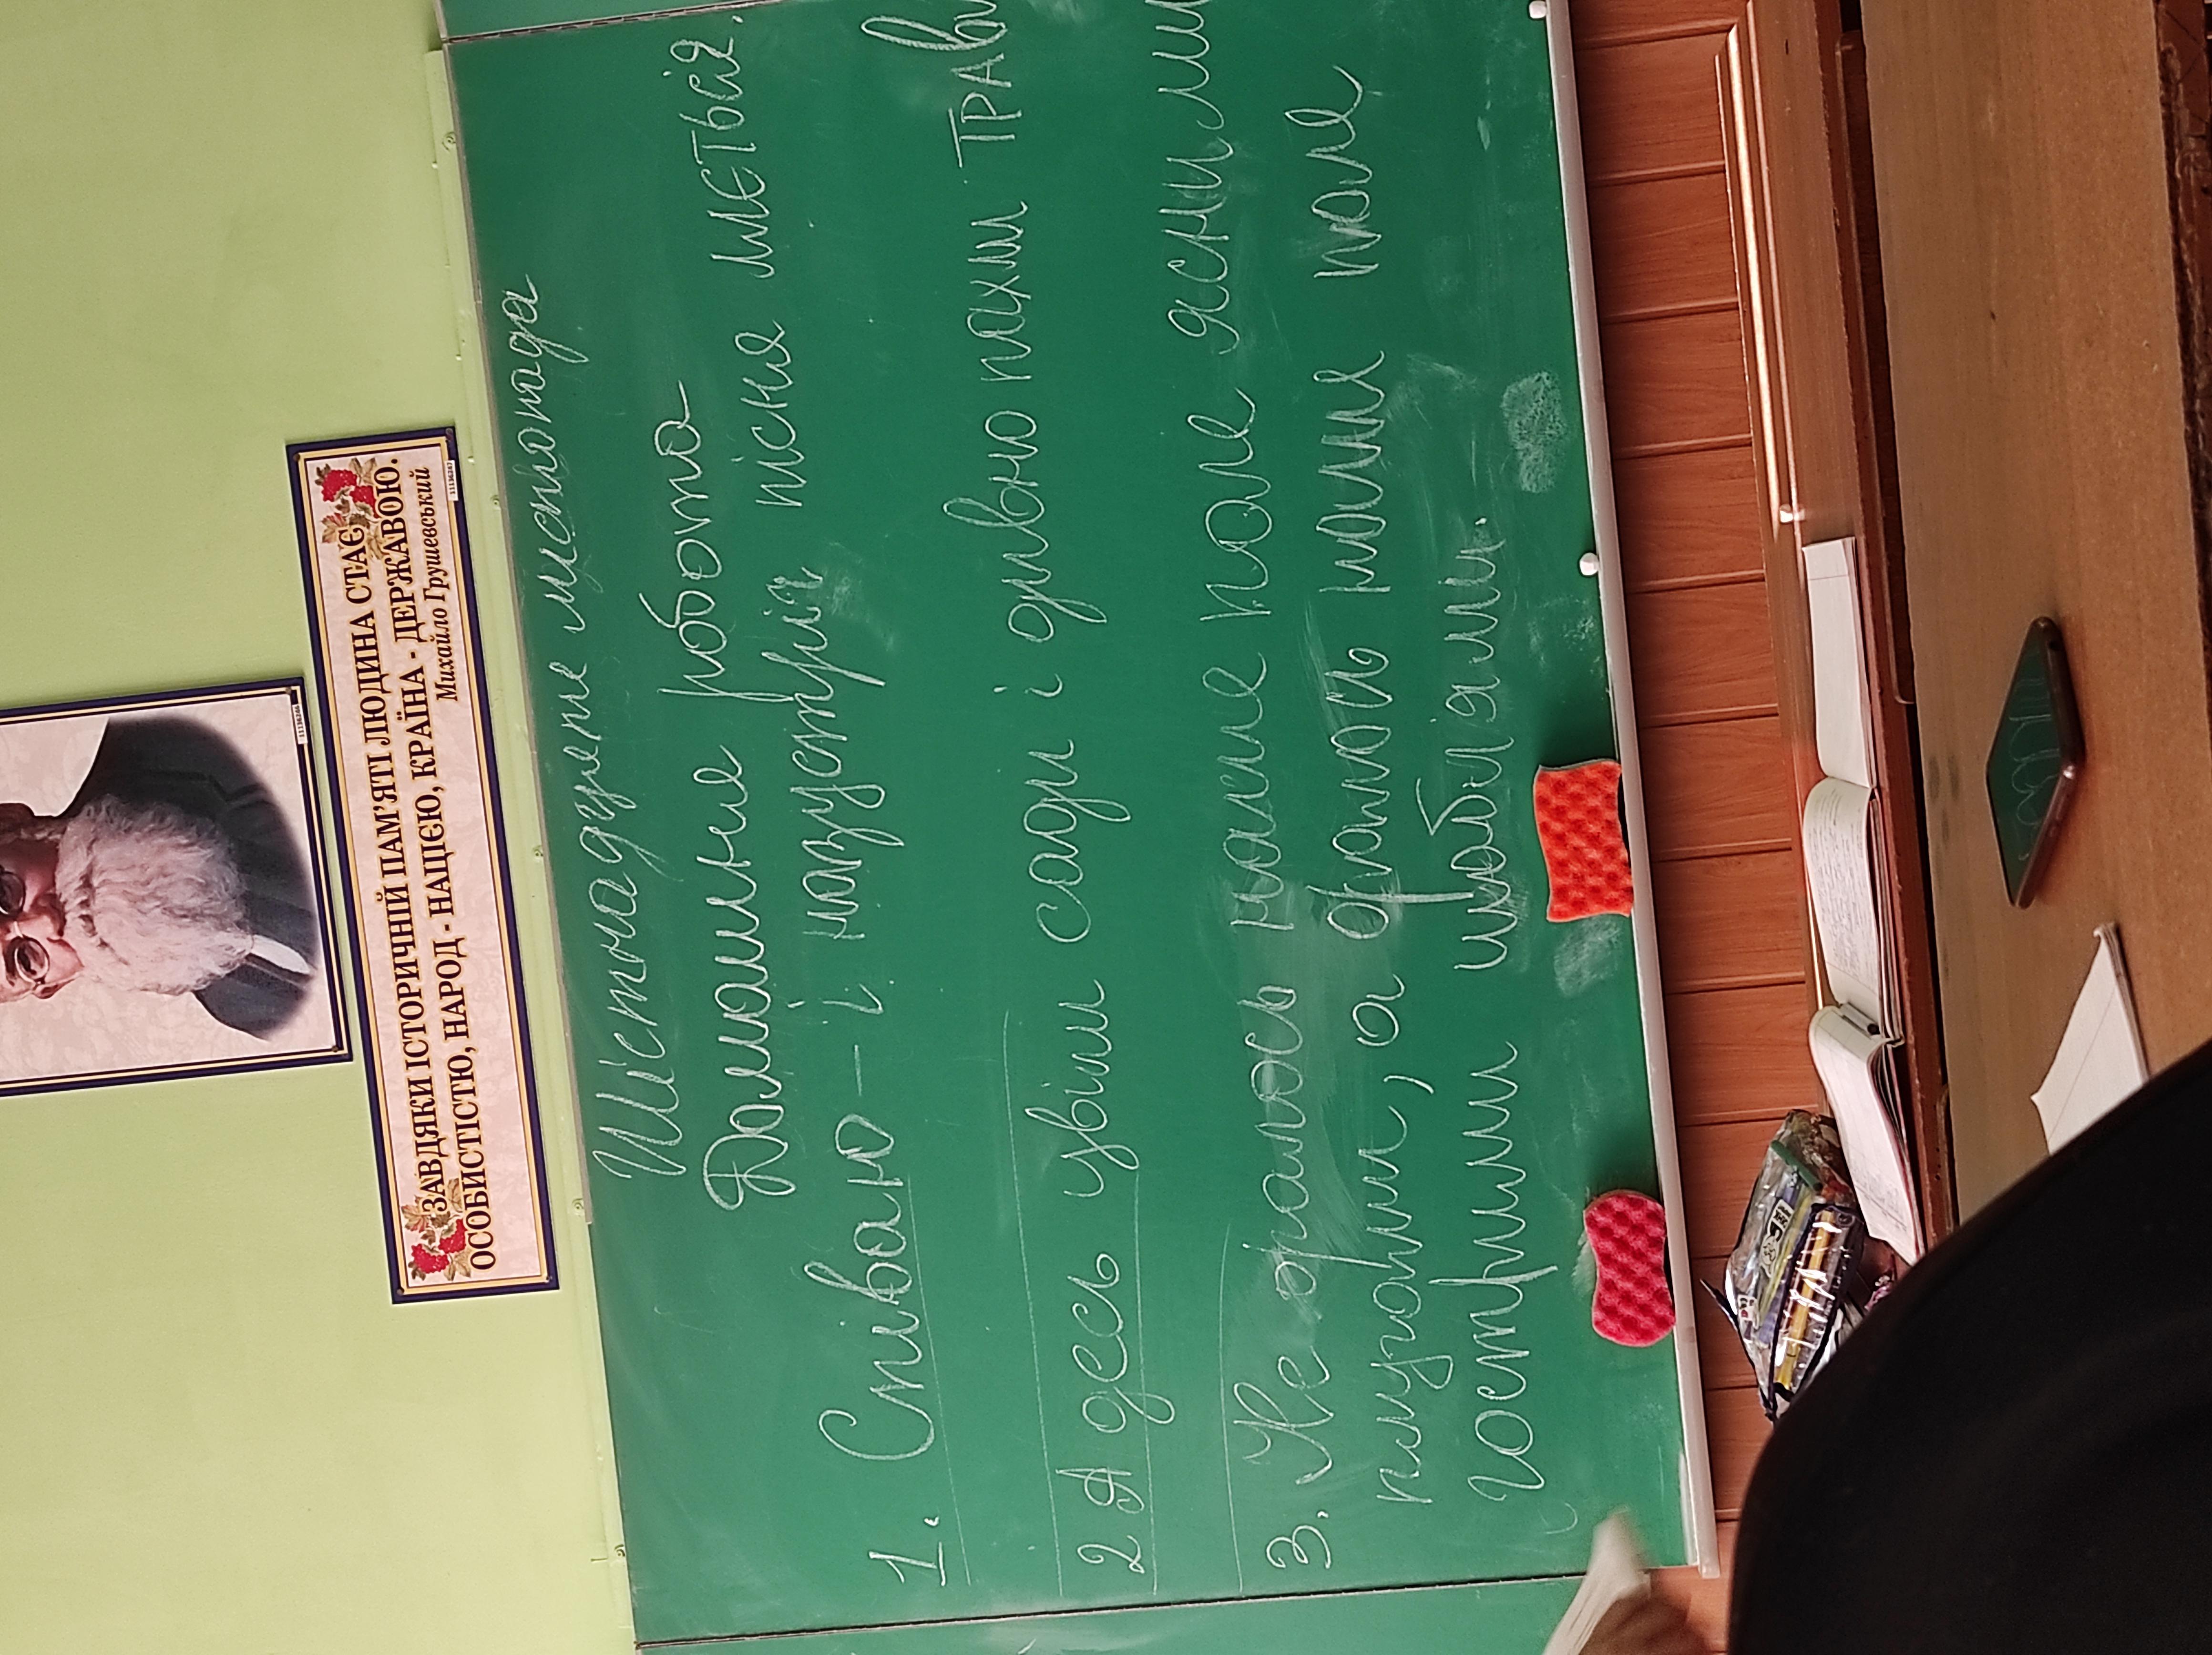 ЗАВДЯКИ ІСТОРИЧНІЙ ПАМ'ЯТІ ЛЮДИНА СТАЄ
ОСОБИСТІСТЮ, НАРОД - НАЦІЄЮ, КРАЇНА - ДЕРЖАВОЮ.
Михайло Грушевський
Шістнадцяте листопада
Домашня робота
1. Співаю - і назустріч пісня летить.
2 А десь увіти сади і дивно пахли трав
3. Не оралось наше поле ясними
плугами, а оралось наше поле
гострими шаблями.